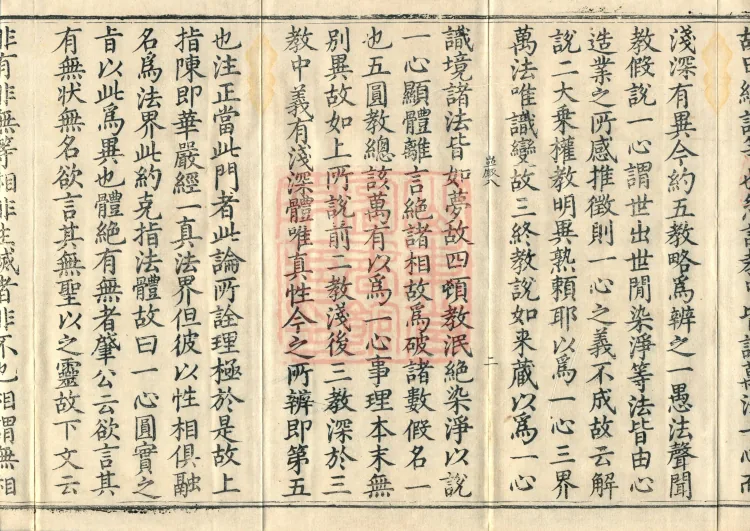 淺深有異今約五教略爲辨之一愚法聲聞
教假說一心謂世出世閒染淨等法皆由心
造業之所感推徵則一心之義不成故云解
說二大乘權教明異熟賴耶以爲一心三界
萬法唯識變故三終教說如來藏以爲一心
二
識境諸法皆如夢故四頓教泯絕染淨以說
一心顯體離言絕諸相故爲破諸數假名一
也五圓教總該萬有以爲一心事理本末無
別異故如上所說前二教淺後三教深於三
教中義有淺深體唯真性今之所辨即第五
也注正當此門者此論所詮理極於是故上
指陳即華嚴經一真法界但彼以性相俱融
名爲法界此約克指法體故曰一心圓實之
旨以此爲異也體絕有無者肇公云欲言其
有無狀無名欲言其無聖以之靈故下文云
非有非無等相非生滅者非不也相謂無相